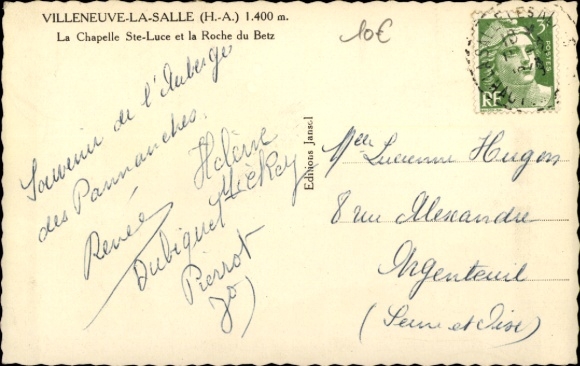 VILLENEUVE-LA-SALLE (H.-A.) 1.400 m.
La Chapelle Ste-Luce et la Roche du Betz
10€
Souvenir de l'Auberge
des Pannanches.
Renée
Hélène
Mickey
Dubiquet
Pierrot
Jo
Editions Jansol
5F
POSTES
RF
Melle Lucienne Hugon
8 rue Alexandre
Argenteuil
(Seine et Oise)